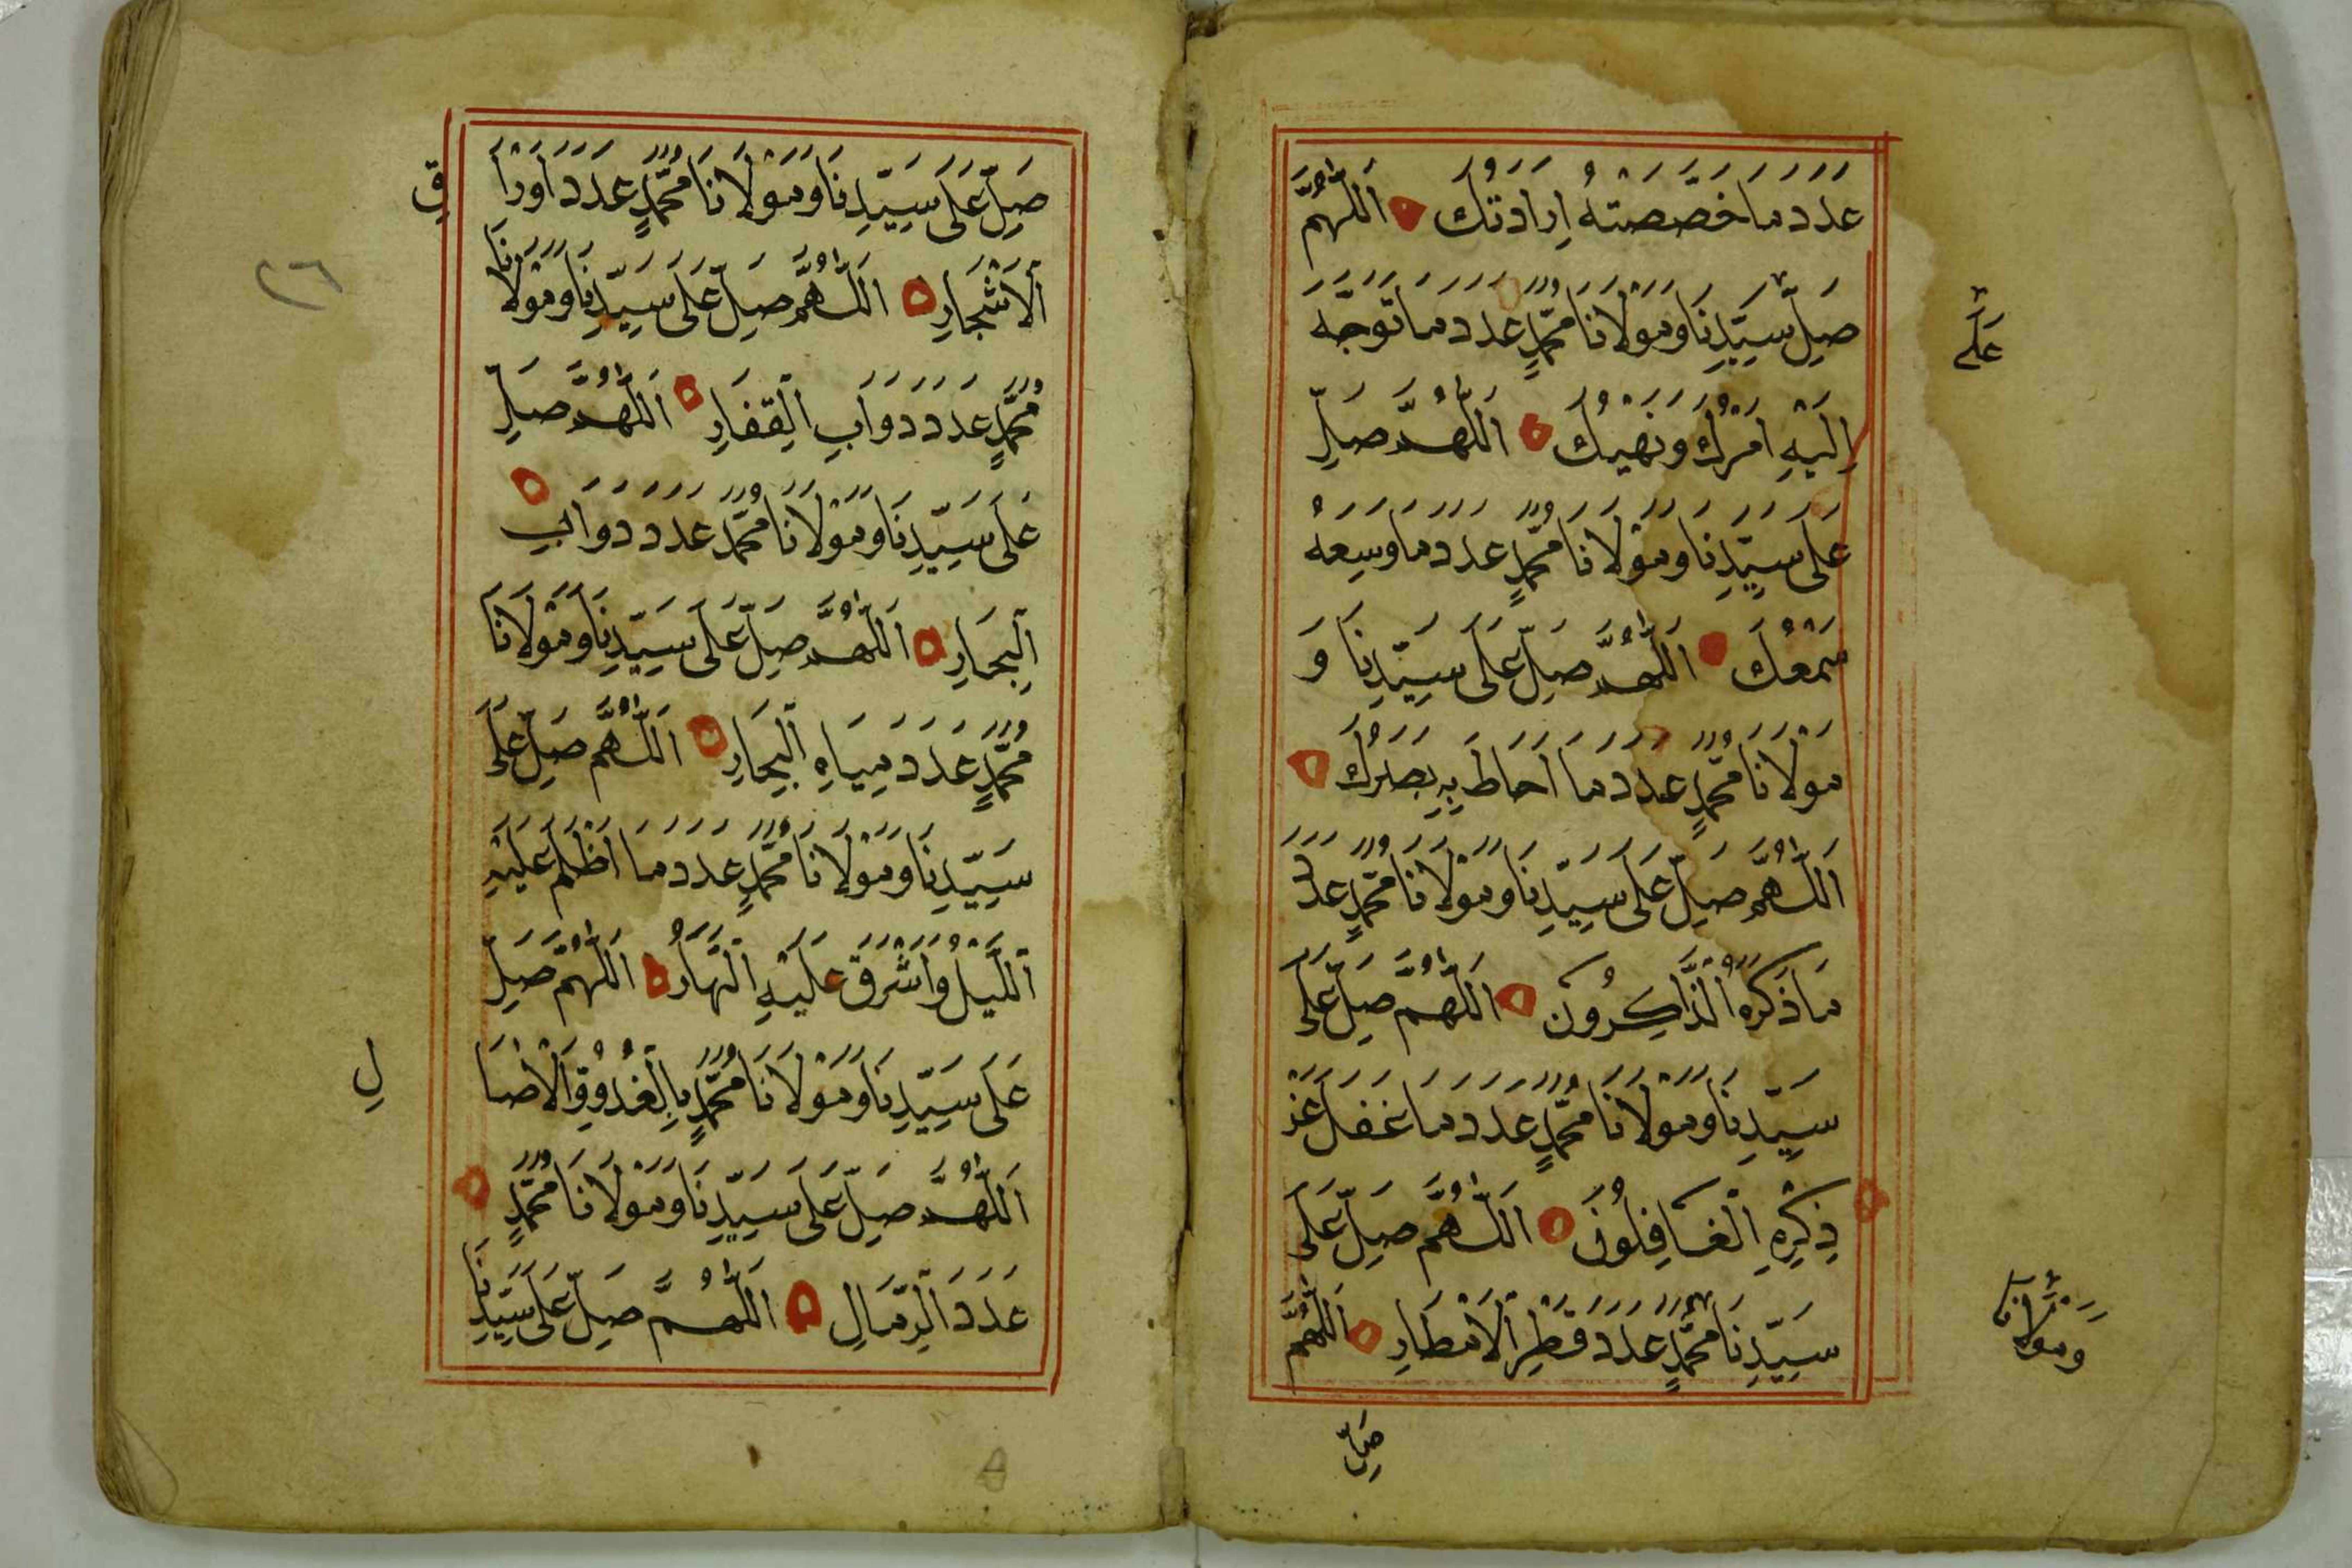 عَدَدَ مَا خَصَّصَتْهُ اِرَادَتُكَ اَللّٰهُمَّ
صَلِّ سَيِّدِنَا وَمَوْلَانَا مُحَمَّدٍ عَدَدَ مَا تَوَجَّهَ
عَلٰى
اِلَيْهِ اَمْرُكَ وَنَهْيُكَ اَللّٰهُمَّ صَلِّ
عَلَى سَيِّدِنَا وَمَوْلَانَا مُحَمَّدٍ عَدَدَ مَا وَسِعَهُ
سَمْعُكَ اَللّٰهُمَّ صَلِّ عَلَى سَيِّدِنَا وَ
مَوْلَانَا مُحَمَّدٍ عَدَدَ مَا اَحَاطَ بِهِ بَصَرُكَ
اَللّٰهُمَّ صَلِّ عَلَى سَيِّدِنَا وَمَوْلَانَا مُحَمَّدٍ عَدَدَ
مَا ذَكَرَهُ الذَّاكِرُونَ اَللّٰهُمَّ صَلِّ عَلَى
سَيِّدِنَا وَمَوْلَانَا مُحَمَّدٍ عَدَدَ مَا غَفَلَ عَنْ
ذِكْرِهِ الْغَافِلُونَ اَللّٰهُمَّ صَلِّ عَلَى
سَيِّدِنَا مُحَمَّدٍ عَدَدَ قَطْرِ الْاَمْطَارِ اَللّٰهُمَّ
وَمَوْلَانَا
صَلِّ
صَلِّ عَلَى سَيِّدِنَا وَمَوْلَانَا مُحَمَّدٍ عَدَدَ اَوْرَا
قِ
الْاَشْجَارِ اَللّٰهُمَّ صَلِّ عَلَى سَيِّدِنَا وَمَوْلَانَا
٢٦
مُحَمَّدٍ عَدَدَ دَوَابِ الْقِفَارِ اَللّٰهُمَّ صَلِّ
عَلَى سَيِّدِنَا وَمَوْلَانَا مُحَمَّدٍ عَدَدَ دَوَابِ
الْبِحَارِ اَللّٰهُمَّ صَلِّ عَلَى سَيِّدِنَا وَمَوْلَانَا
مُحَمَّدٍ عَدَدَ مِيَاهِ الْبِحَارِ اَللّٰهُمَّ صَلِّ عَلَى
سَيِّدِنَا وَمَوْلَانَا مُحَمَّدٍ عَدَدَ مَا اَظْلَمَ عَلَيْهِ
اللَّيْلُ وَاَشْرَقَ عَلَيْهِ النَّهَارُ اَللّٰهُمَّ صَلِّ
عَلَى سَيِّدِنَا وَمَوْلَانَا مُحَمَّدٍ بِالْغُدُوِّ وَالْاٰصَا
لِ
اَللّٰهُمَّ صَلِّ عَلَى سَيِّدِنَا وَمَوْلَانَا مُحَمَّدٍ
عَدَدَ الرِّمَالِ اَللّٰهُمَّ صَلِّ عَلَى سَيِّدِنَا